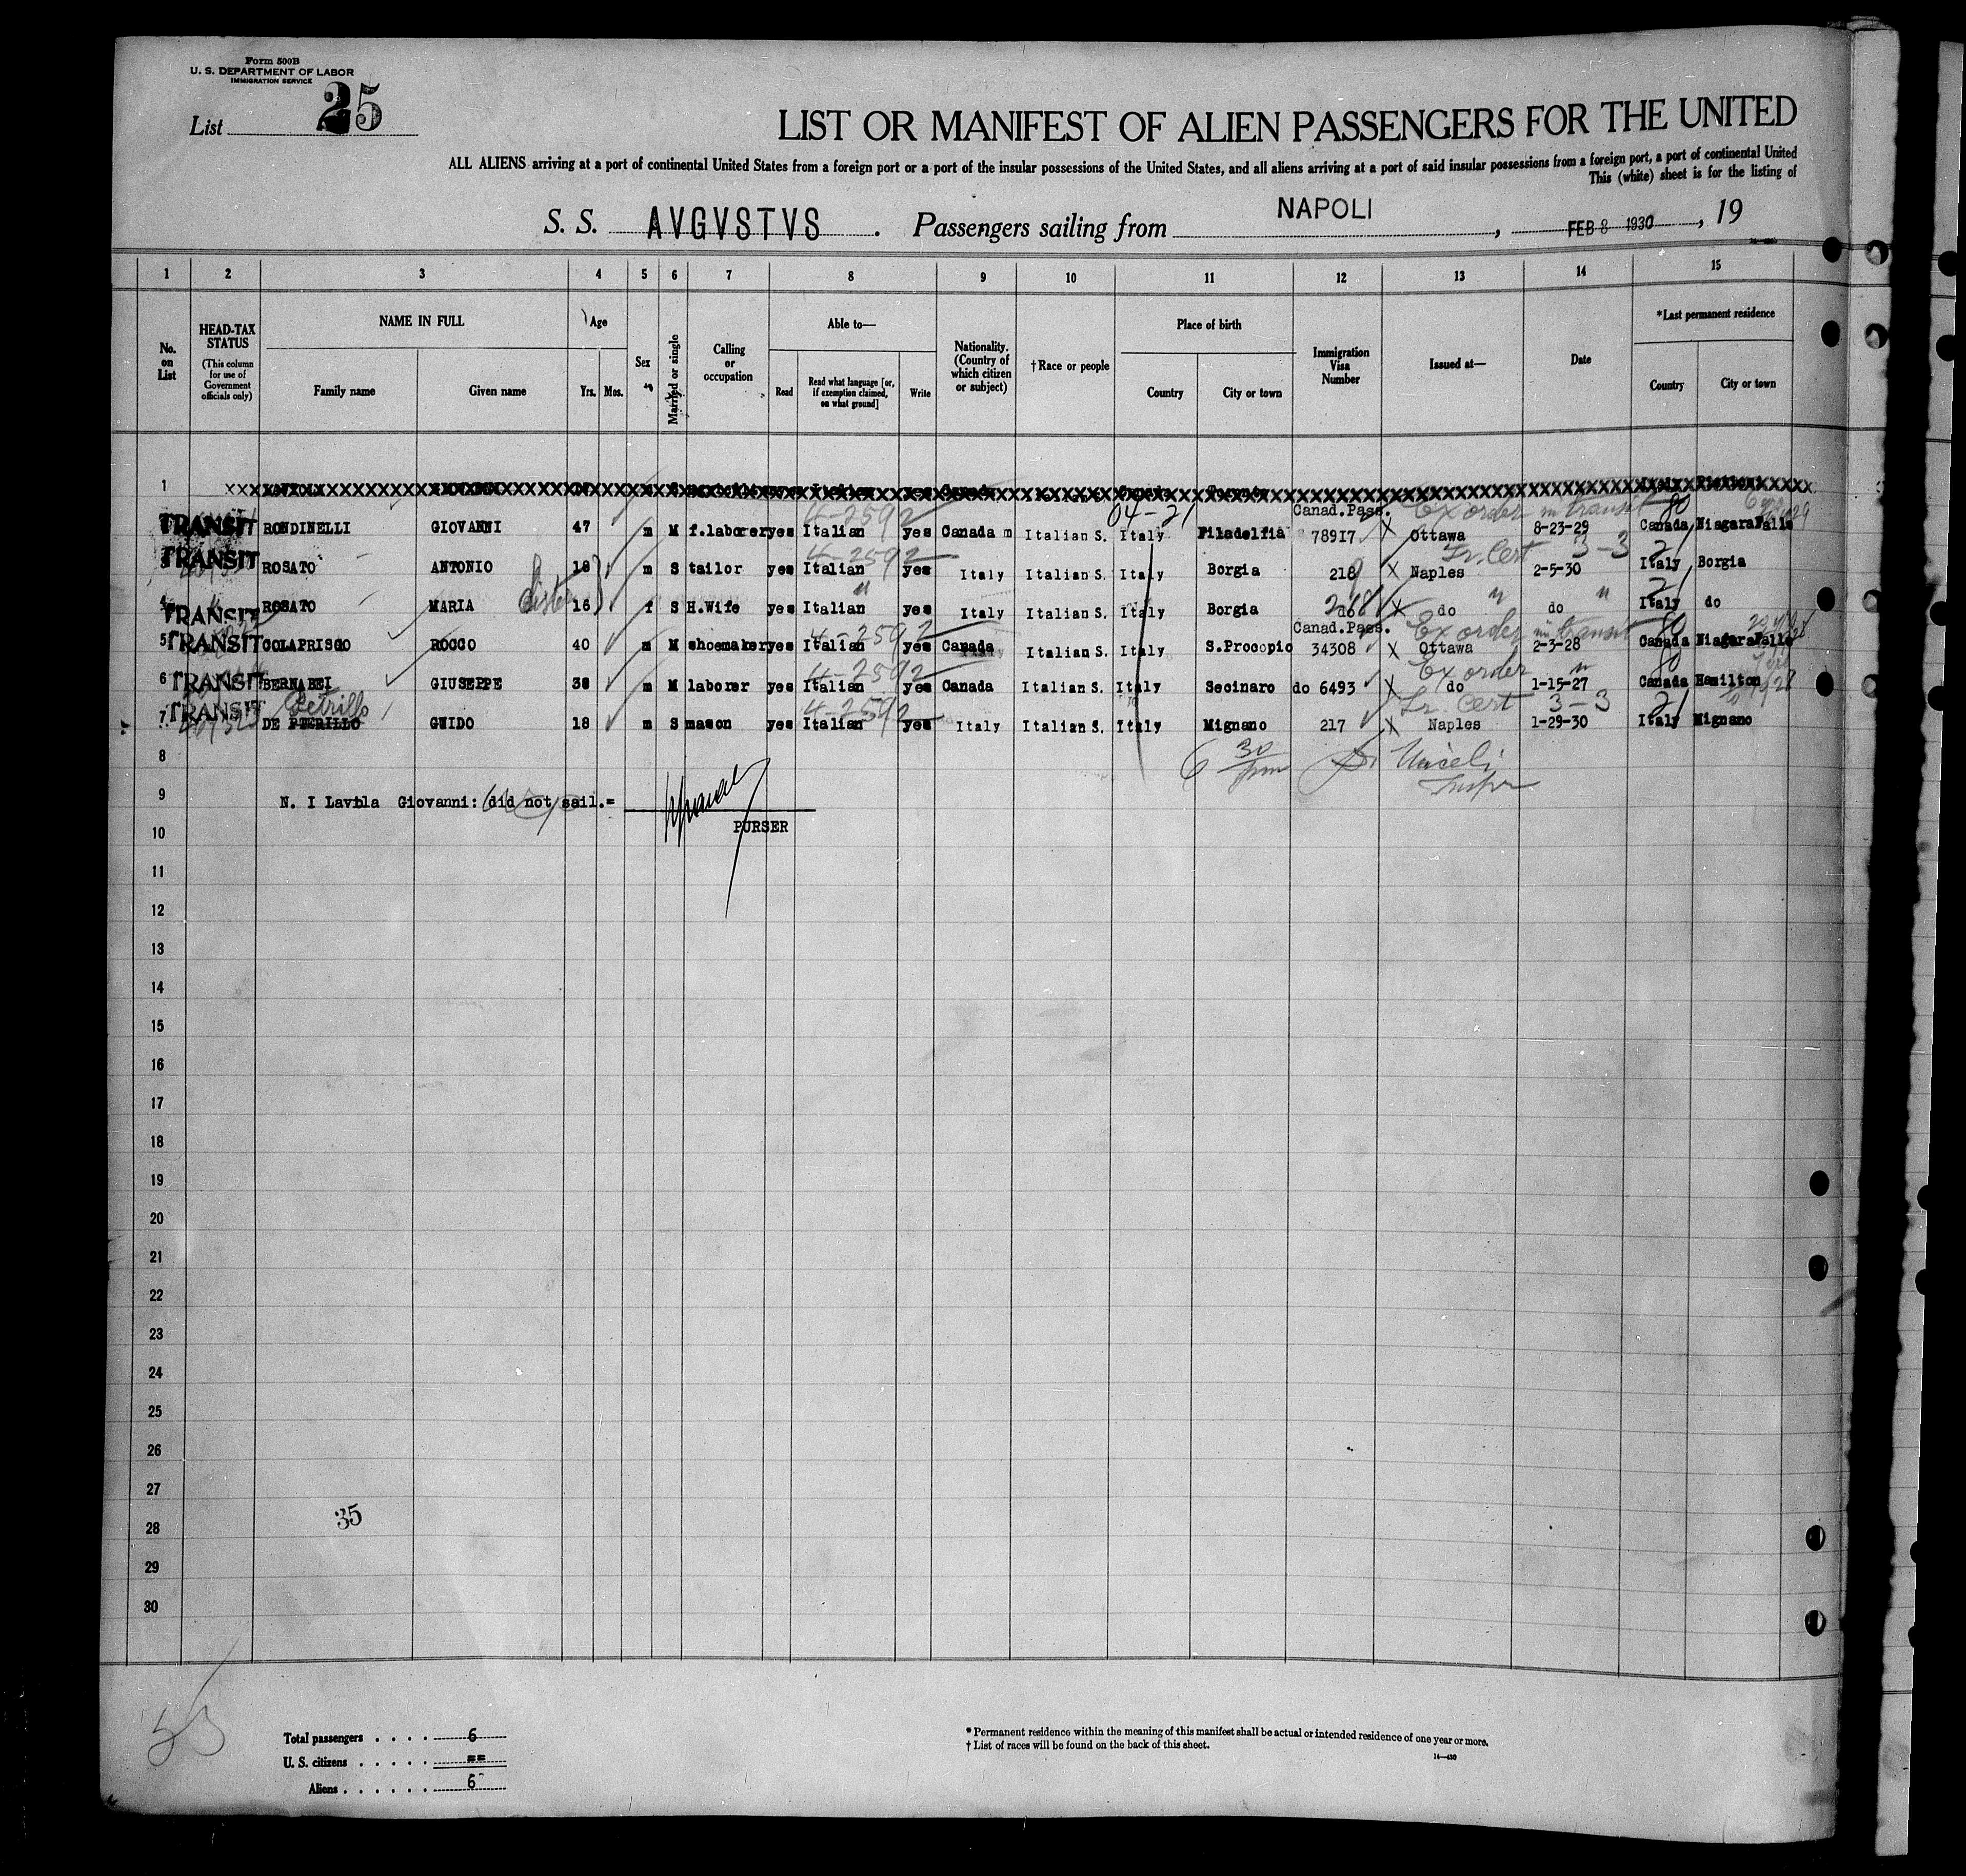 Form 500B
U. S. DEPARTMENT OF LABOR
IMMIGRATION SERVICE
List 25
LIST OR MANIFEST OF ALIEN PASSENGERS FOR THE UNITED
ALL ALIENS arriving at a port of continental United States from a foreign port or a port of the insular possessions of the United States, and all aliens arriving at a port of said insular possessions from a foreign port, a port of continental United
This (white) sheet is for the listing of
S. S. AVGVSTVS . Passengers sailing from NAPOLI , FEB 8 1930 , 19
1 2 3 4 5 6 7 8 9 10 11 12 13 14 15
No. on List
HEAD-TAX STATUS
(This column for use of Government officials only)
NAME IN FULL
Family name Given name
Age
Yrs. Mos.
Sex
Married or single
Calling or occupation
Able to—
Read Read what language [or, if exemption claimed, on what ground] Write
Nationality. (Country of which citizen or subject)
†Race or people
Place of birth
Country City or town
Immigration Visa Number
Issued at—
Date
*Last permanent residence
Country City or town
1
04-21 Canad.Pass. Ex order in transit 80
TRANSIT RONDINELLI GIOVANNI 47 m M f.laborer yes Italian 4-2592 yes Canada m Italian S. Italy Filadelfia 78917 X Ottawa 8-23-29 Canada NiagaraFalls
Tr. Cert 3-3 21
TRANSIT 3 ROSATO ANTONIO 18 m S tailor yes Italian 4-2592 yes Italy Italian S. Italy Borgia 218 X Naples 2-5-30 Italy Borgia
TRANSIT 4 ROSATO MARIA Sister 16 f S H.Wife yes Italian " yes Italy Italian S. Italy Borgia do X do " do " Italy 21 do
Canad.Pass. Ex order in transit 80
TRANSIT 5 COLAPRISCO ROCCO 40 m M shoemaker yes Italian 4-2592 yes Canada Italian S. Italy S.Procopio 34308 X Ottawa 2-3-28 Canada NiagaraFalls
Ex order " 80
TRANSIT 6 BERNABEI GIUSEPPE 38 m M laborer yes Italian 4-2592 yes Canada Italian S. Italy Secinaro do 6493 X do 1-15-27 Canada Hamilton
Petrillo Tr. Cert 3-3 21
TRANSIT 7 DE PTERILLO GUIDO 18 m S mason yes Italian 4-2592 yes Italy Italian S. Italy Mignano 217 X Naples 1-29-30 Italy Mignano
8 6 30 pm
9 N. I Lavbla Giovanni: did not sail.=
10 PURSER
11
12
13
14
15
16
17
18
19
20
21
22
23
24
25
26
27
28 35
29
30
Total passengers . . . . 6
U. S. citizens . . . . . ==
Aliens . . . . . . 6
* Permanent residence within the meaning of this manifest shall be actual or intended residence of one year or more.
† List of races will be found on the back of this sheet.
14—430